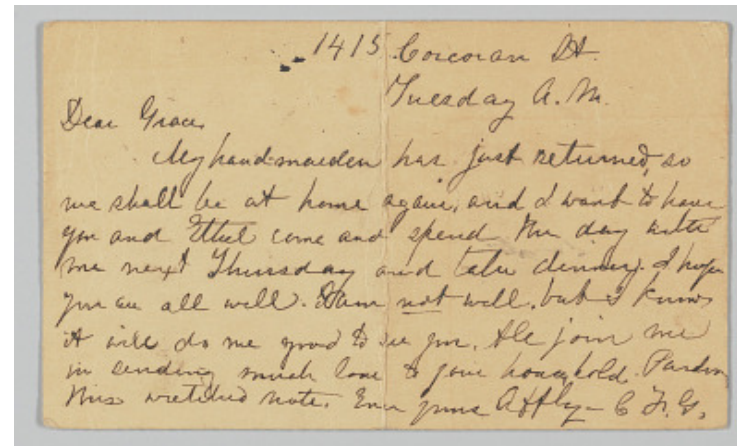 1415 Corcoran St.
Tuesday A.M.
Dear Grace,
My hand-maiden has just returned, so
we shall be at home again, and I want to have
you and Ethel come and spend the day with
me next Thursday and take dinner. I hope
you are all well. I am not well, but I know
it will do me good to see you. All join me
in sending much love to your household. Pardon
this wretched note. Ever yours Affly - C F. G.